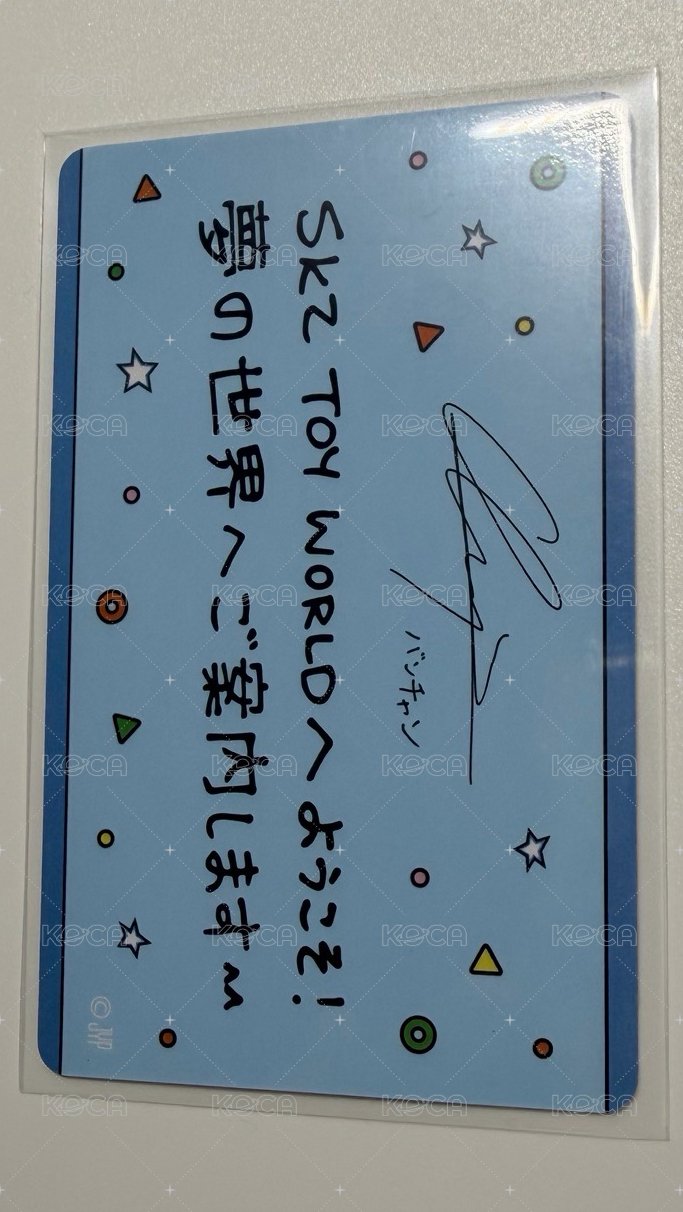 SKZ TOY WORLDへようこそ!
夢の世界へご案内します
バンチャン
©JYP
KOCA